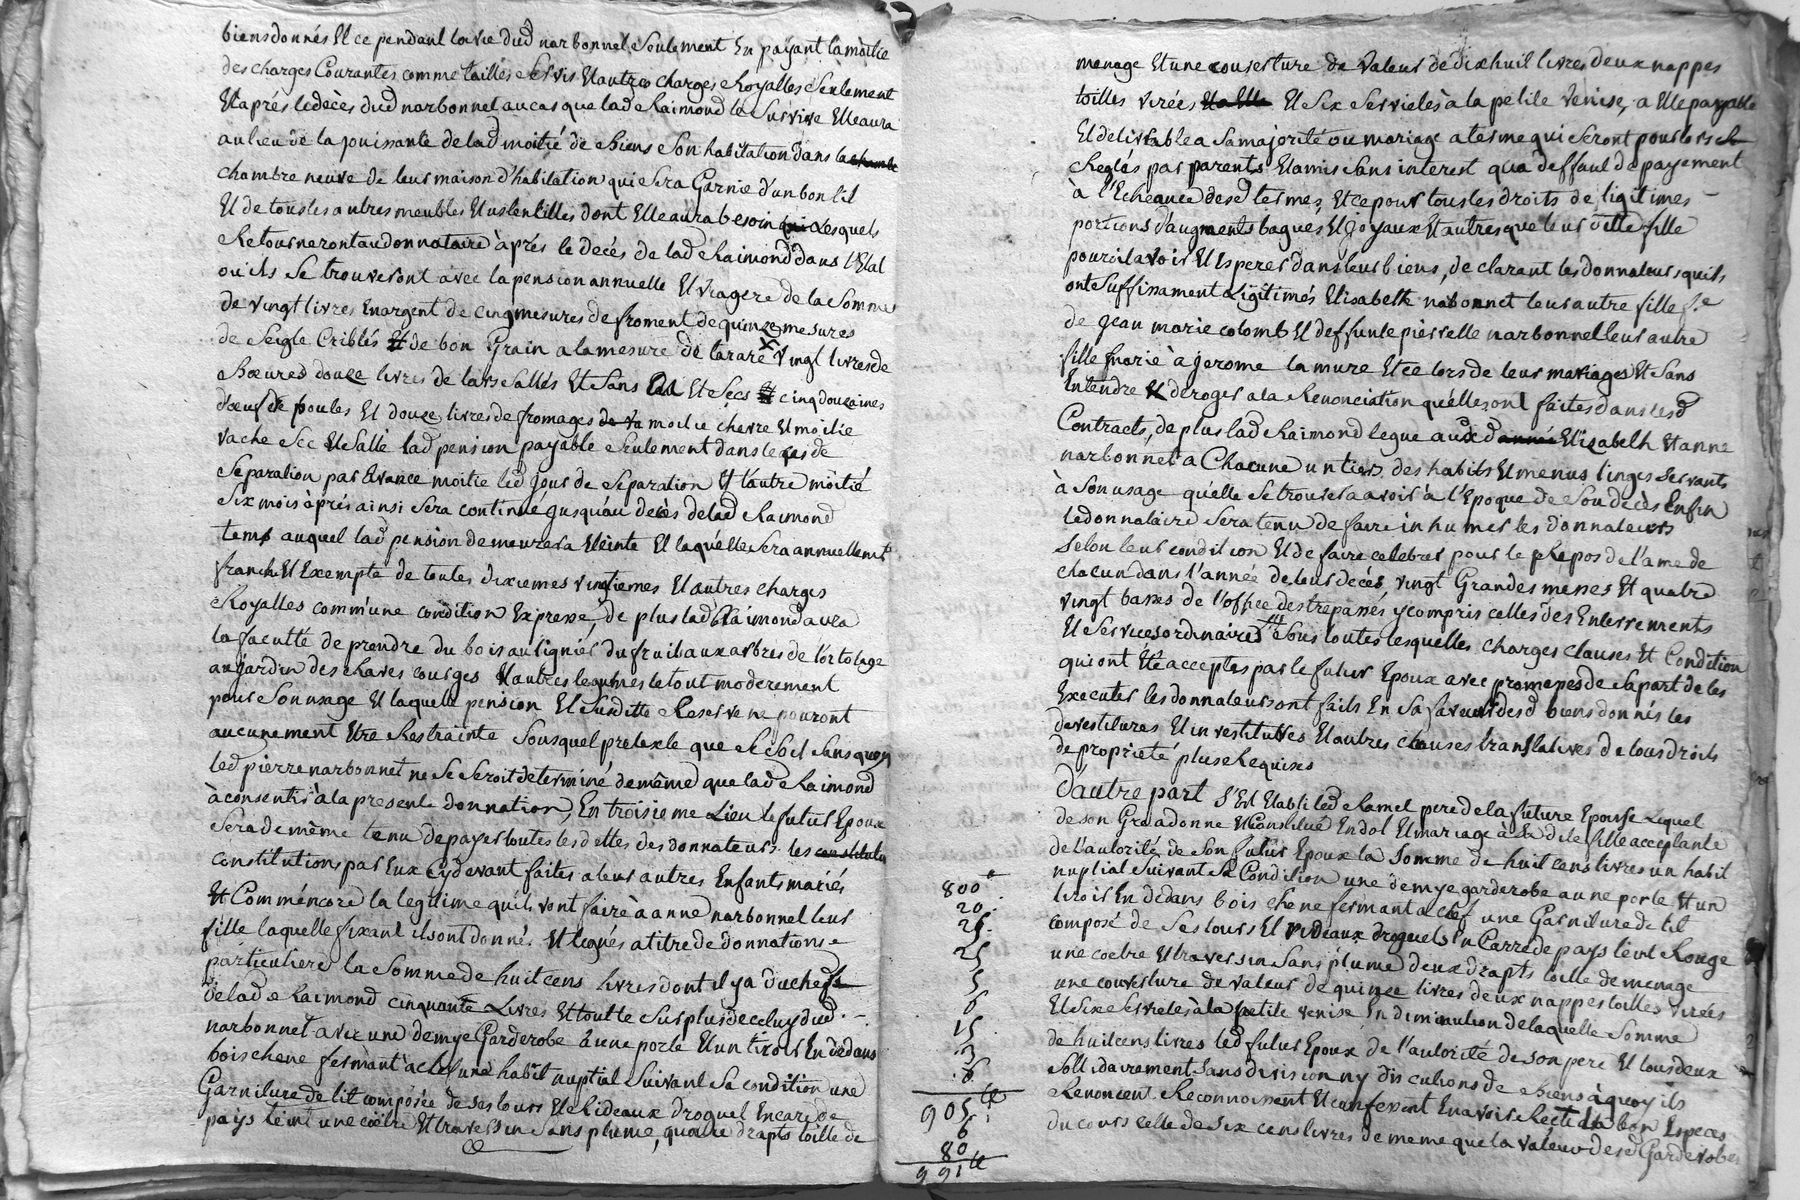 biens donnés Et ce pendant la vie dud narbonnet Seulement En payant la moitié
des charges Courantes comme tailles Servis Et autres charges Royalles Seulement
Et aprés le decès dud narbonnet au cas que lad Raimond le Survive Elle aura
au lieu de la jouissante de lad moitié de Biens Son habitation dans la chambre
chambre neuve de leur maison d'habitation qui Sera Garnie d'un bon lit
Et de tous les autres meubles Et ustentilles dont Elle aura besoin qui Lesquels
Retourneront au donnataire àprés le decés de lad Raimond dans l'Etat
ou ils Se trouveront avec la pension annuelle Et viagere de la Somme
de vingt livres En argent de cinq mesures de froment de quinze mesures
de Seigle Criblés Et de bon Grain a la mesure de tarare vingt livres de
Bœure douze livres de lard Sallés Et Sans Et Secs cinq douzaines
d'œufs de poules Et douze livres de fromages de va moitie chevre Et moitie
vache Sec Et Sallé lad pension payable Seulement dans le cas de
Separation par avance moitie led jour de Separation Et l'autre moitié
Six mois àprés ainsi Sera continué jusqu'au decès de lad Raimond
tems auquel lad pension demeurera Eteinte Et laquelle Sera annuellemt
franche Et Exempte de toutes dixiemes vingtiemes Et autres charges
Royalles comm'une condition Expresse, de plus lad Raimond aura
la faculté de prendre du bois au lignier du fruit aux arbres de l'ortolage
au jardin des Raves courges Et autres legumes le tout moderement
pour Son usage Et laquelle pension Et Susditte Reserve ne pouront
aucunement Etre Restrainte Sous quel pretexte que ce Soit Sans quoy
led pierre narbonnet ne Se Seroit determiné de même que lad Raimond
à consentir à la presente donnation, En troisieme Lieu le futur Epoux
Sera de même tenu de payer toutes les dettes des donnateurs les constitution
constitutions par Eux Cy devant faites a leur autres Enfants mariés
Et Comm'encore la legitime qu'ils vont faire à anne narbonnet leur
fille laquelle fixant ils ont donné Et legués a titre de donnation
particuliere la Somme de huit cens livres dont il y a du chef
de lad Raimond cinquante Livres Et tout le Surplus de celuy dud
narbonnet avec une demye Garderobe à une porte Et un tiroir En dedans
bois chene fermant à clef une habit nuptial Suivant Sa condition une
Garniture de lit composée de Ses tours Et Rideaux droguet En care de
pays teint une coëtre Et traversin Sans plume, quatre drapts toille de
menage Et une couverture de valeur de dix huit livres deux nappes
toilles virées Et Six Serviettes à la petite Venise, a Elle payable
Et delivrable a Sa majorité ou mariage a terme qui Seront pour lors
Reglés par parents Et amis Sans interest qu'a deffaut de payement
à l'Echeance desd termes, Et ce pour tous les droits de ligitimes
portions d'augments bagues Et joyaux Et autres que leur ditte fille
pouroit avoir Et Esperer dans leur biens, de clarant les donnateurs qu'ils
ont Suffissament Ligitimés Elisabeth nabonnet leur autre fille fe
de Jean marie colomb Et deffunte pierrette narbonnet leur autre
fille marié à jerome la mure Et ce lors de leur mariages Et Sans
Entendre deroger a la Renonciation qu'elles ont faites dans lesd
Contracts, de plus lad Raimond legue auxd Elizabeth Et anne
narbonnet a Chacune un tiers des habits Et menus linges Servants
à Son usage qu'elle Se trouvera avoir à l'Epoque de Son decès Enfin
le donnataire Sera tenu de faire inhumer les donnateurs
Selon leur condition Et de faire celebrer pour le Repos de l'ame de
chacun dans l'année de leur decés, vingt Grandes messes Et quatre
vingt basses de l'office des trepassés y compris celles des Enterrements
Et Services ordinaires Sous toutes lesquelles charges clauses Et Condition
qui ont Eté acceptes par le futur Epoux avec promesses de Sa part de les
Executer les donnateurs ont faits En Sa faveur desd biens donnés les
devestitures Et investitures Et autres clauses translatives de tous droits
de proprieté plus Requises
D'autre part S'Est Etabli led Ramel pere de la future Epouse Lequel
de son Gré a donné Et Constitué En dot Et mariage à Sa dite fille acceptante
de l'autorité de Son futur Epoux la Somme de huit cens livres un habit
nuptial Suivant Sa Condition une demye garderobe a une porte Et un
tiroir En dedans bois chene fermant a clef une Garniture de lit
composé de Ses tours Et Rideaux droguets En Carre de pays teint Rouge
une coetre Et traversin Sans plume deux drapts toille de menage
une couverture de valeur de quinze livres deux nappes toilles virées
Et Six Serviettes à la petite venise En diminution de laquelle Somme
de huit cens livres led futur Epoux de l'autorité de son pere Et tous deux
Sollidairement Sans division ny discutions de Biens à quoy ils
Renoncent Reconnoissent Et confessent En avoir Recut En bon Especes
du cours celle de Six cens livres de meme que la valeur desd Garderobe
800
20
25
25
5
6
15
3
6
905 tt
6
80
991 tt